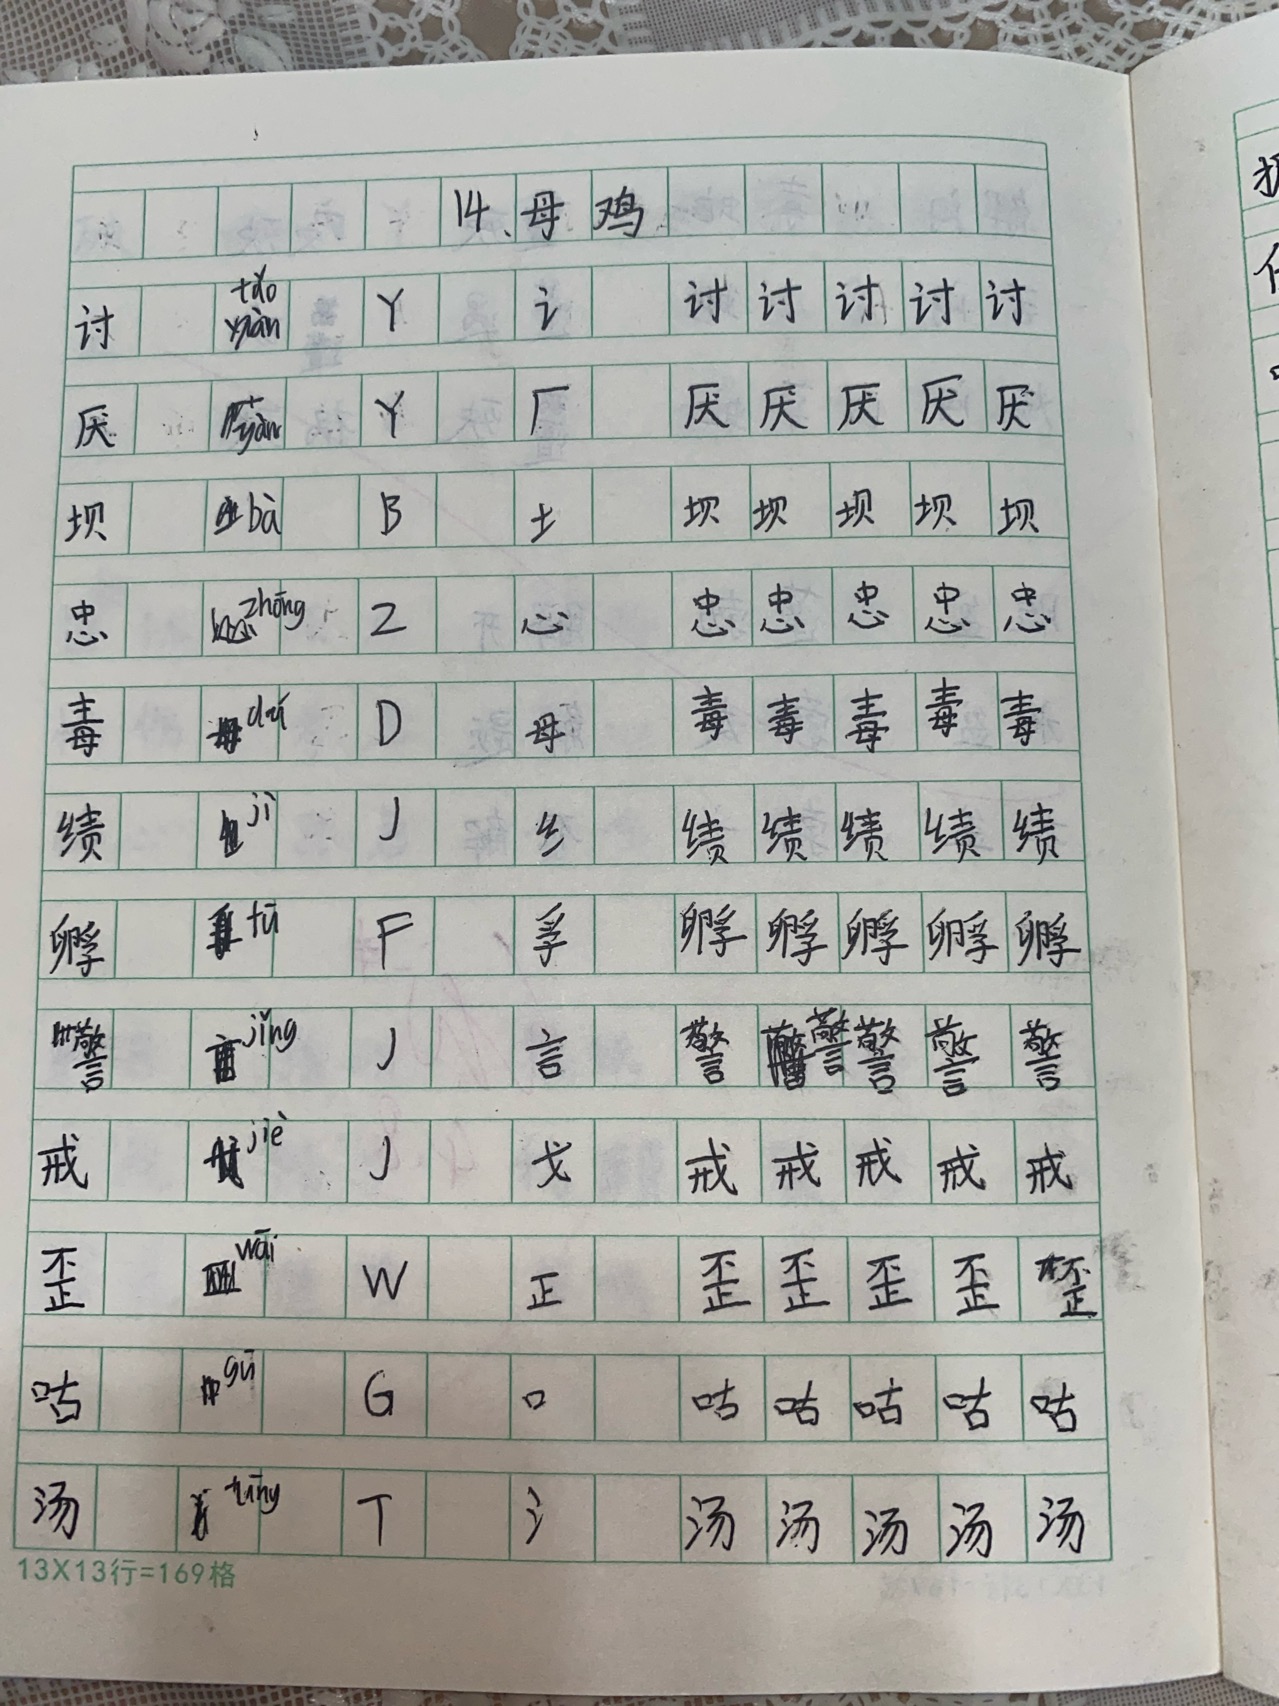 14、母鸡
讨 tǎo yàn Y 讠 讨 讨 讨 讨 讨
厌 yàn Y 厂 厌 厌 厌 厌 厌
坝 bà B 土 坝 坝 坝 坝 坝
忠 zhōng Z 心 忠 忠 忠 忠 忠
毒 dú D 母 毒 毒 毒 毒 毒
绩 jì J 纟 绩 绩 绩 绩 绩
孵 fū F 孚 孵 孵 孵 孵 孵
警 jǐng J 言 警 警 警 警 警
戒 jiè J 戈 戒 戒 戒 戒 戒
歪 wāi W 正 歪 歪 歪 歪 歪
咕 gū G 口 咕 咕 咕 咕 咕
汤 tāng T 氵 汤 汤 汤 汤 汤
13X13行=169格